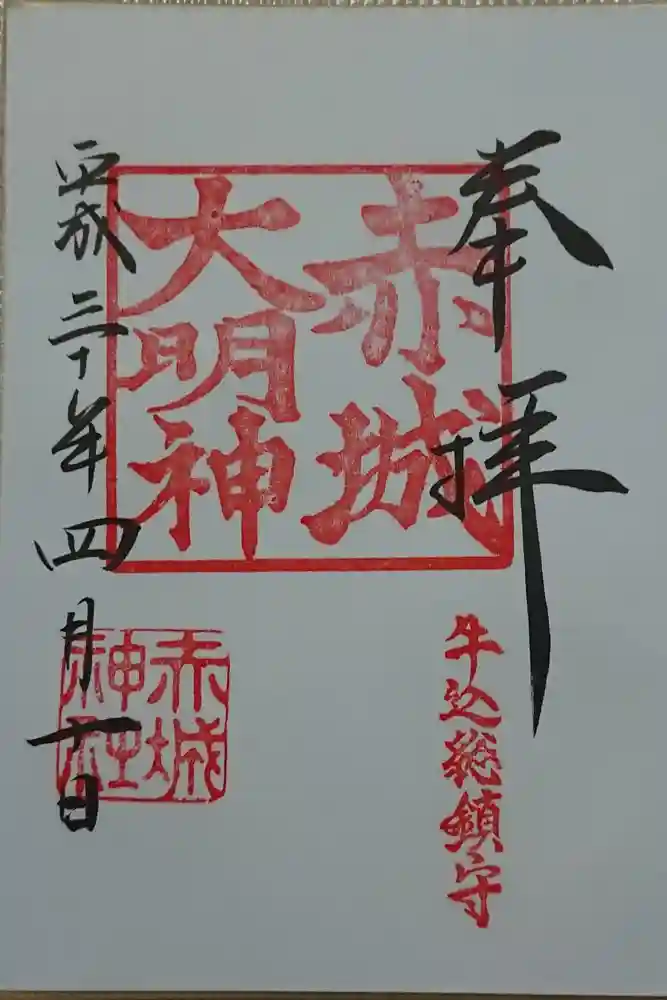 奉拝
牛込総鎮守
赤城
大明神
赤城
神社
平成三十年四月十日